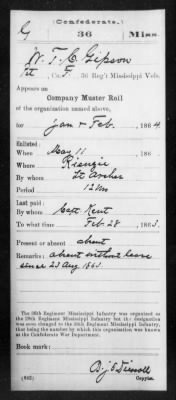 (Confederate.)
G 36 Miss.
W. T. C. Gipson
Pt, Co. F, 36 Reg't Mississippi Vols.
Appears on
Company Muster Roll
of the organization named above,
for Jan & Feb, 1864.
Enlisted:
When May 11, 186
Where Rienzi
By whom Lt Archer
Period 12 Mo
Last paid:
By whom Capt Kent
To what time Feb 28, 1863.
Present or absent absent
Remarks: absent without leave
since 23 Aug 1863
The 36th Regiment Mississippi Infantry was organized as
the Regiment Mississippi Infantry but the designation
was soon changed to the 36th Regiment Mississippi Infantry,
that being the number by which this organization was known
at the Confederate War Department.
Book mark:
(642)
Copyist.